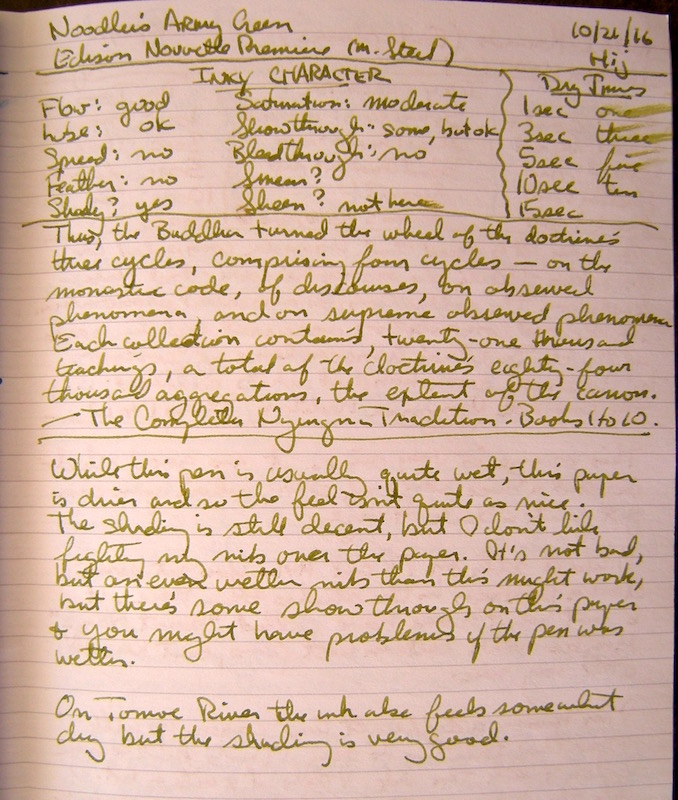 Noodler's Army Green 10/21/16
Edison Nouvelle Premiere (m. Steel) Hij
INKY CHARACTER Dry Times
Flow: good Saturation: moderate 1sec one
Lube: ok Showthrough: some, but ok 3sec three
Spread: no Bleedthrough: no 5sec five
Feather: no Smear? 10sec ten
Shady? yes Sheen? not here 15sec
Thus, the Buddha turned the wheel of the doctrine's
three cycles, comprising four cycles — on the
monastic code, of discourses, on observed
phenomena, and on supreme observed phenomena
Each collection contains, twenty-one thousand
teachings, a total of the doctrine's eighty-four
thousand aggregations, the extent of the canon.
— The Complete Nyingma Tradition - Books 1 to 10.
While this pen is usually quite wet, this paper
is drier and so the feel isn't quite as nice.
The shading is still decent, but I don't like
fighting my nibs over the paper. It's not bad,
but an even wetter nib than this might work,
but there's some showthrough on this paper
& you might have problems if the pen was
wetter.
On Tomoe River the ink also feels somewhat
dry but the shading is very good.